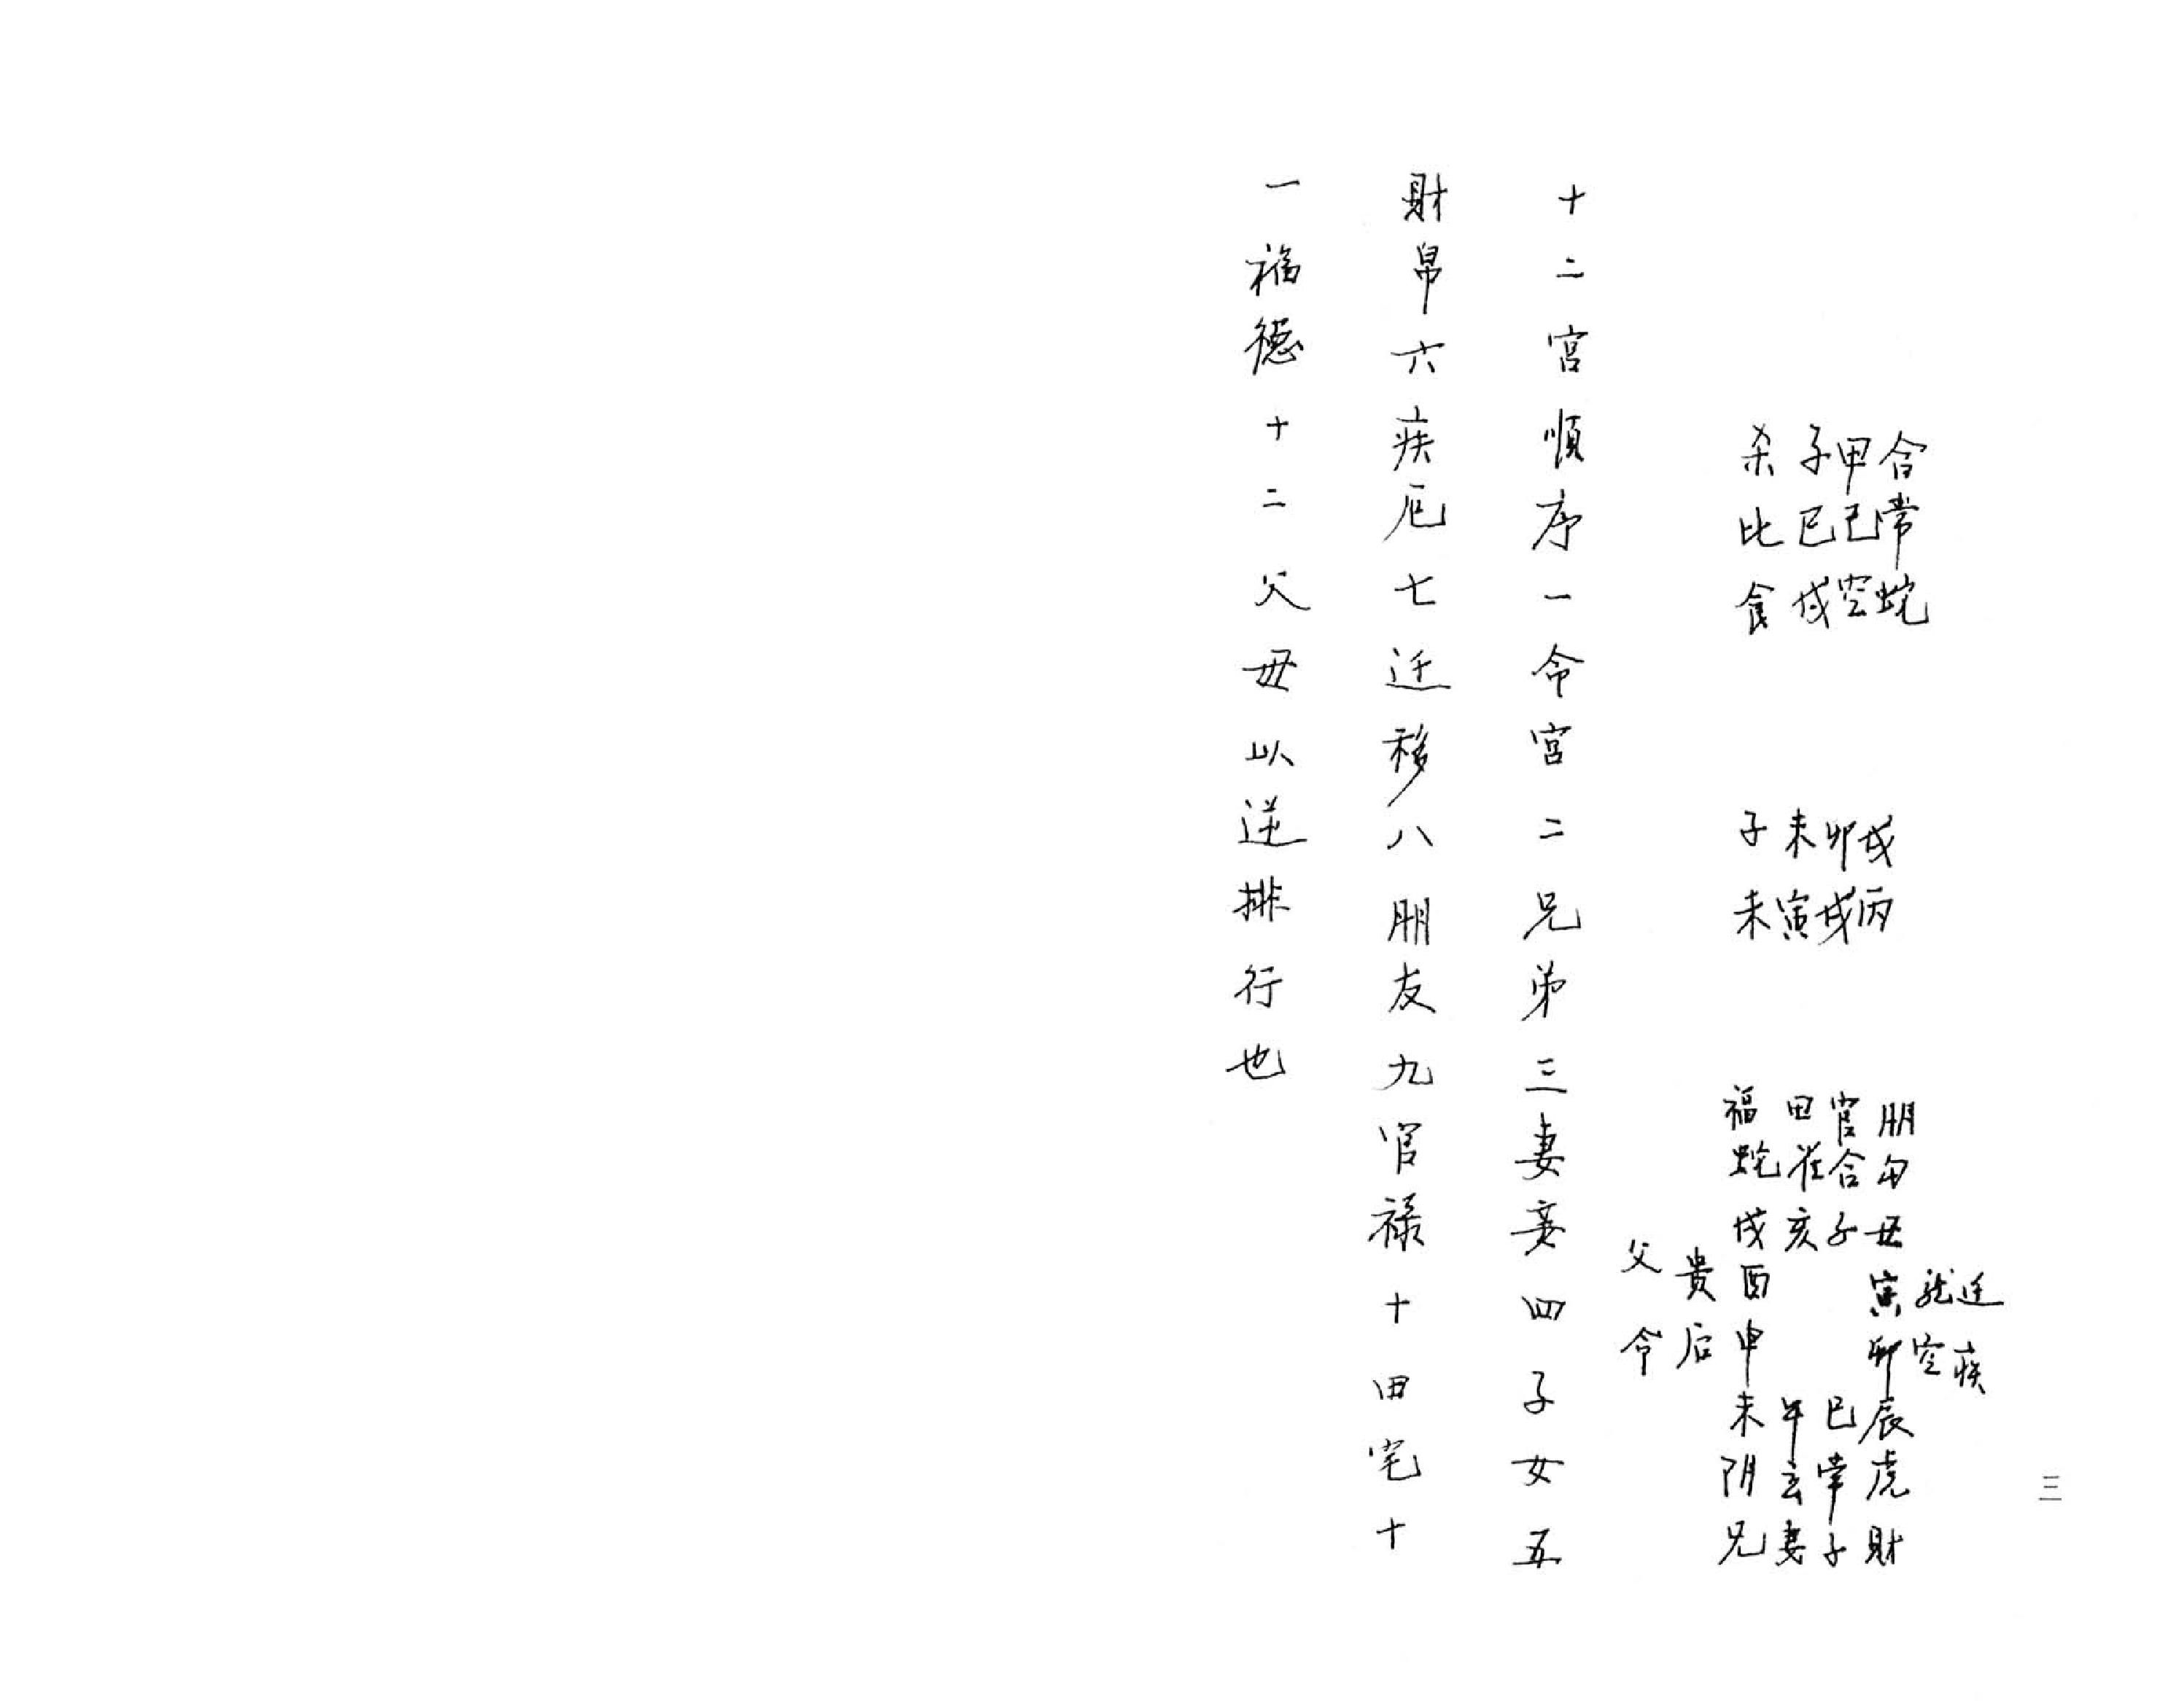 三
合常蛇
甲己空
子巳戌
杀比食
戌丙
卯戌
未寅
子未
迁疾
龙空
朋勾丑寅卯辰虎財
官合子巳常子
田雀亥午玄妻
福蛇戌酉申未阴兄
貴后
父命
十二宫順序一命宫二兄弟三妻妾四子女五
財帛六疾厄七迁移八朋友九官禄十田宅十
一福德十二父母以逆排行也